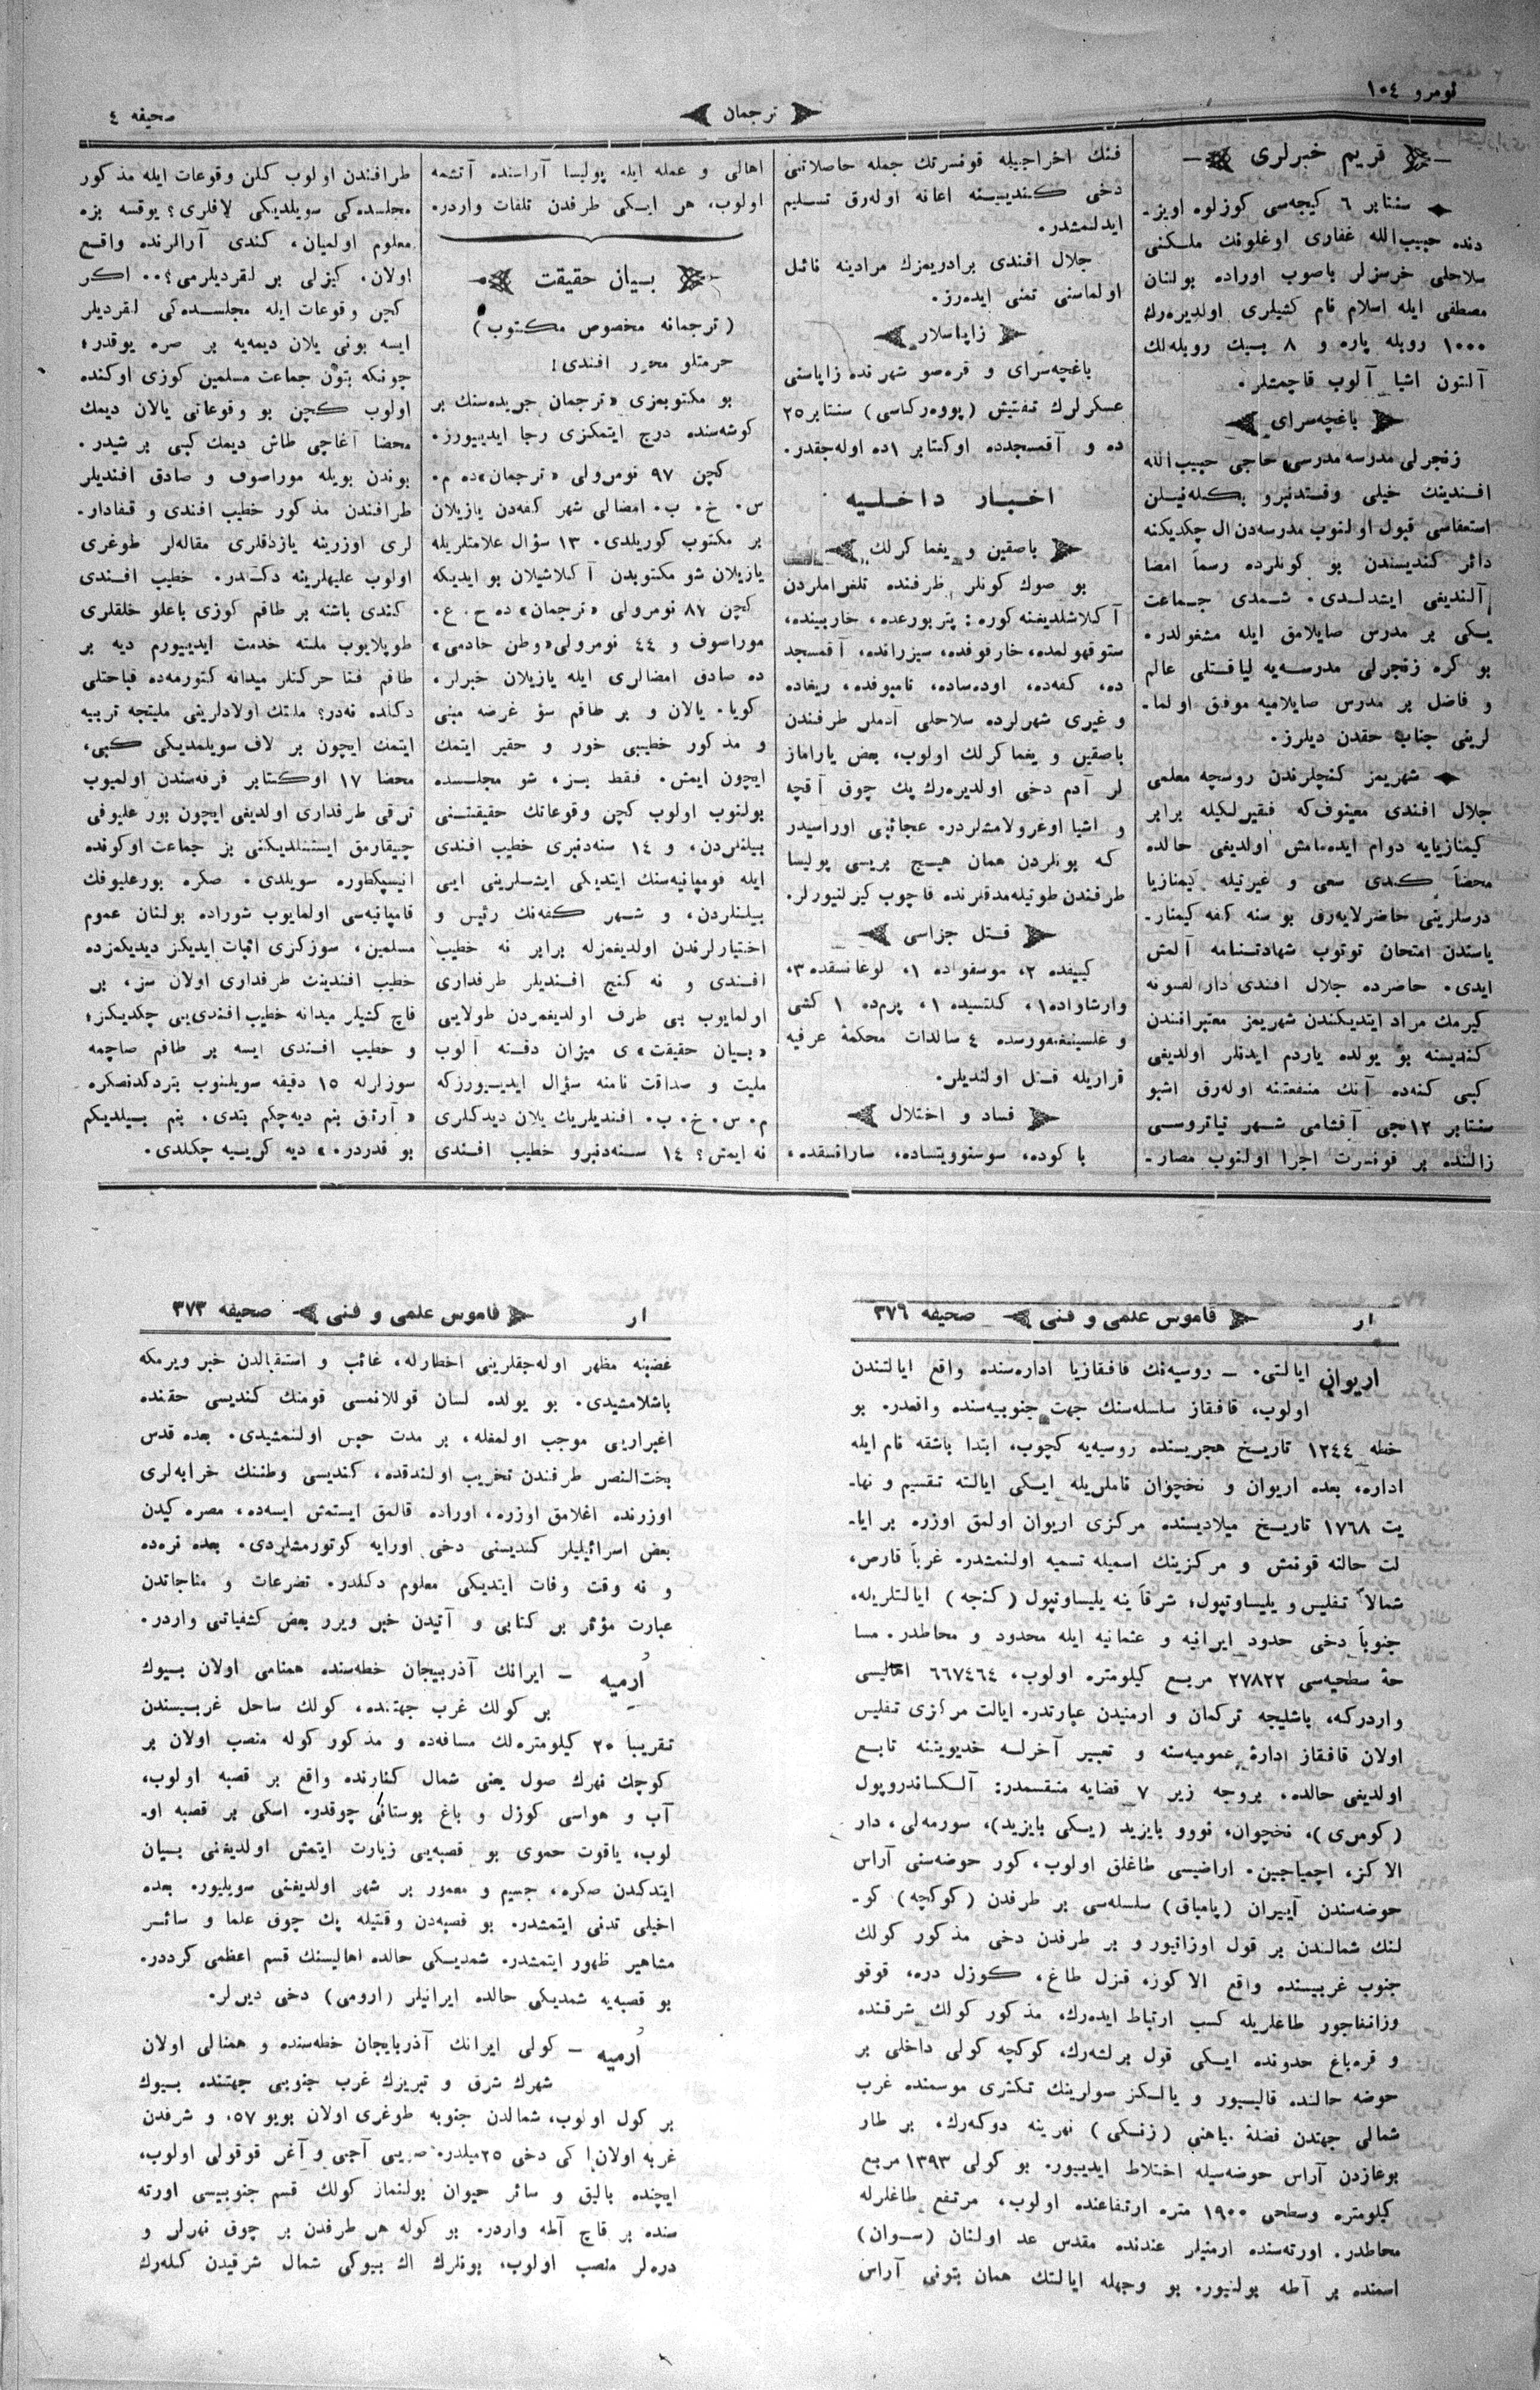 نومرو ١٠٤
ترجمان
صحيفه ٤
قريم خبرلرى
سنتابر ٦ كيجه‌سى كوزلوه اويز-
دنده حبيب‌الله غفارى اوغلونك ملكنى
سلاحلى خرسزلر باصوب اوراده بولنان
مصطفى ايله اسلام نام كشيلرى اولديره‌رك
١٠٠٠ روبله پاره و ٨ بيك روبله‌لك
آلتون اشيا آلوب قاچمشلر.
باغچه‌سراى
زنجرلى مدرسه مدرسى حاجى حبيب‌الله
افندينك خيلى وقتدنبرو بكله‌نيلن
استعفاسى قبول اولنوب مدرسه‌دن ال چكديكنه
دائر كنديسندن بو كونلرده رسماً امضا
آلنديغى ايشدلدى. شمدى جماعت
يكى بر مدرس صايلامق ايله مشغولدر.
بو كره زنجرلى مدرسه‌يه لياقتلى عالم
و فاضل بر مدرس صايلاميه موفق اولما-
لرينى جناب حقدن ديلرز.
شهريمز كنچلرندن روسچه معلمى
جلال افندى معينوف‌كه فقيرلكيله برابر
كيمنازيايه دوام ايده‌مامش اولديغى حالده
محضاً كندى سعى و غيرتيله كيمنازيا
درسلرينى حاضرلايه‌رق بو سنه كفه كيمنا-
ياسندن امتحان توتوب شهادتنامه آلمش
ايدى. حاضرده جلال افندى دارالفنونه
كيرمك مراد ايتديكندن شهريمز معتبرانندن
كنديسنه بو يولده ياردم ايدنلر اولديغى
كبى كفه‌ده آنك منفعتنه اوله‌رق اشبو
سنتابر ١٢نجى آقشامى شهر تياتروسى
زالنده بر قونسرت اجرا اولنوب مصار-
فنك اخراجيله قونسرتك جمله حاصلاتنى
دخى كنديسنه اعانه اوله‌رق تسليم
ايدلمشدر.
جلال افندى برادريمزك مرادينه نائل
اولماسنى تمنى ايده‌رز.
زاپاسلار
باغچه‌سراى و قره‌صو شهرنده زاپاسنى
عسكرلرك تفتيش (پووه‌ركاسى) سنتابر ٢٥
ده و آقمسجدده اوكتابر ١ده اوله‌جقدر.
اخبار داخليه
باصقين و يغما كرلك
بو صوك كونلر ظرفنده تلغراملردن
آكلاشلديغنه كوره: پتربورغده، خاربينده،
ستوقهولمده، خارقوفده، سيزرانده، آقمسجد
ده، كفه‌ده، اوده‌ساده، تامبوفده، ريغاده
و غيرى شهرلرده سلاحلى آدملر طرفندن
باصقين و يغما كرلك اولوب، بعض ياراماز
لر آدم دخى اولديره‌رك پك چوق آقچه
و اشيا اوغرولامشلردر. عجائبى اوراسيدر
كه بونلردن همان هيچ بريسى پوليسا
طرفندن طوتيله‌مدقلرنده قاچوب كيزلنيورلر.
قتل جزاسى
كييفده ٢، موسقواده ١، لوغانسقده ٣،
وارشاواده ١، كلتسيده ١، پرم‌ده ١ كشى
و غلسينغفورسده ٤ سالدات محكمهٔ عرفيه
قراريله قتل اولنديلر.
فساد و اختلال
باكوده، سوسنوويتساده، سارانسقده،
اهالى و عمله ايله پوليسا آراسنده آتشمه
اولوب، هر ايكى طرفدن تلفات واردر.
بيان حقيقت
(ترجمانه مخصوص مكتوب)
حرمتلو محرر افندى!
بو مكتوبمزى «ترجمان جريده‌سنك بر
كوشه‌سنده درج ايتمكزى رجا ايدييورز.
كچن ٩٧ نومرولى «ترجمان»ده م.
س. خ. ب. امضالى شهر كفه‌دن يازيلان
بر مكتوب كوريلدى. ١٣ سؤال علامتلريله
يازيلان شو مكتوبدن آكلاشيلان بو ايديكه
كچن ٨٧ نومرولى «ترجمان» ده ح. ع.
موراصوف و ٤٤ نومرولى «وطن خادمى»
ده صادق امضالرى ايله يازيلان خبرلر.
كويا. يالان و بر طاقم سؤ غرضه مبنى
و مذكور خطيبى خور و حقير ايتمك
ايچون ايمش. فقط بز، شو مجلسده
بولنوب اولوب كچن وقوعاتك حقيقتنى
بيلنلردن، و ١٤ سنه‌دنبرى خطيب افندى
ايله قومپانيه‌سنك ايتديكى ايشلرينى ايى
بيلنلردن، و شهر كفه‌نك رئيس و
اختيارلرندن اولديغمزله برابر نه خطيب
افندى و نه كنج افنديلر طرفدارى
اولمايوب بى طرف اولديغمزدن طولايى
«بيان حقيقت»ى ميزان دقته آلوب
مليت و صداقت نامنه سؤال ايدييورزكه
م. س. خ. ب. افنديلريك يلان ديدكلرى
نه ايمش؟ ١٤ سنه‌دنبرو خطيب افندى
طرافندن اولوب كلن وقوعات ايله مذكور
مجلسده‌كى سويلديكى لافلرى؟ يوقسه بزه
معلوم اولميان، كندى آرالرنده واقع
اولان. كيزلى بر لقرديلرمى؟.. اكر
كچن وقوعات ايله مجلسده‌كى لقرديلر
ايسه بونى يلان ديمه‌يه بر صره يوقدر؛
چونكه بتون جماعت مسلمين كوزى اوكنده
اولوب كچن بو وقوعاتى يالان ديمك
محضا آغاچى طاش ديمك كبى بر شيدر.
بوندن بويله موراصوف و صادق افنديلر
طرافندن مذكور خطيب افندى و قفادار-
لرى اوزرينه يازدقلرى مقاله‌لر طوغرى
اولوب عليهلرينه دكلدر. خطيب افندى
كندى باشنه بر طاقم كوزى باغلو خلقلرى
طوپلايوب ملته خدمت ايدييورم ديه بر
طاقم فنا حركتلر ميدانه كتورمه‌ده قباحتلى
دكلده نه‌در؟ ملتك اولادلرينى مليتجه تربيه
ايتمك ايچون بر لاف سويلمديكى كبى،
محضا ١٧ اوكتابر فرقه‌سندن اولميوب
ترقى طرفدارى اولديغى ايچون بورعليوفى
چيقارمق ايستنلديكنى بز جماعت اوكونده
انيسپكطوره سويلدى. صكره بورعليوفك
قامپانيه‌سى اولمايوب شوراده بولنان عموم
مسلمين، سوزكزى اثبات ايديكز ديديكمزده
خطيب افندينك طرفدارى اولان سز، بر
قاچ كشيلر ميدانه خطيب افندى‌يى چكديكز؛
و خطيب افندى ايسه بر طاقم صاچمه
سوزلرله ١٥ دقيقه سويلنوب بتردكدنصكره
«آرتق بنم ديه‌چكم بتدى. بنم بيلديكم
بو قدردر.» ديه كريسيه چكلدى.
ار
قاموس علمى و فنى
صحيفه ٣٧٦
اريوان ايالتى. — روسيه‌نك قافقازيا اداره‌سنده واقع ايالتندن
اولوب، قافقاز سلسله‌سنك جهت جنوبيه‌سنده واقعدر. بو
خطه ١٢٤٤ تاريخ هجريسنده روسيه‌يه كچوب، ابتدا باشقه نام ايله
اداره، بعده اريوان و نخچوان ناملريله ايكى ايالته تقسيم و نها-
يت ١٧٦٨ تاريخ ميلاديسنده مركزى اريوان اولمق اوزره بر ايا-
لت حالنه قونمش و مركزينك اسميله تسميه اولنمشدر. غرباً قارص،
شمالاً تفليس و يليساوتپول؛ شرقاً ينه يليساوتپول (كنجه) ايالتلريله،
جنوباً دخى حدود ايرانيه و عثمانيه ايله محدود و محاطدر. مسا
حهٔ سطحيه‌سى ٢٧٨٢٢ مربع كيلومتره اولوب، ٦٦٧٤٦٤ اهاليسى
واردركه، باشليجه تركمان و ارمنيدن عبارتدر. ايالت مركزى تفليس
اولان قافقاز ادارهٔ عموميه‌سنه و تعبير آخرله خديويتنه تابع
اولديغى حالده، بروجه زير ٧ قضايه منقسمدر: آلكساندروپول
(كومرى)، نخچوان، نووو بايزيد (يكى بايزيد)، سورمه‌لى، دار
الاكز، اچمياجين. اراضيسى طاغلق اولوب، كور حوضه‌سنى آراس
حوضه‌سندن آييران (پامباق) سلسله‌سى بر طرفدن (كوكچه) كو-
لنك شمالندن بر قول اوزاتيور و بر طرفدن دخى مذكور كولك
جنوب غربيسنده واقع الاكوز، قيزل طاغ، كوزل دره، قوقو
وزانغاجور طاغلريله كسب ارتباط ايده‌رك، مذكور كولك شرقنده
و قره‌باغ حدودنده ايكى قول برلشه‌رك، كوكچه كولى داخلى بر
حوضه حالنده قاليور و يالكز صولرينك تكثرى موسمنده غرب
شمالى جهتدن فضلهٔ مياهنى (زنكى) نهرينه دوكه‌رك، بر طار
بوغازدن آراس حوضه‌سيله اختلاط ايدييور. بو كولى ١٣٩٣ مربع
كيلومتره وسطحى ١٩٠٠ متره ارتفاعنده اولوب، مرتفع طاغلرله
محاطدر. اورته‌سنده ارمنيلر عندنده مقدس عد اولنان (سوان)
اسمنده بر آطه بولنيور. بو وجهله ايالتك همان بتونى آراس
ار
قاموس علمى و فنى
صحيفه ٣٧٣
غضبنه مظهر اوله‌جقلرينى اخطارله، غائب و استقبالدن خبر ويرمكه
باشلامشيدى. بو يولده لسان قوللانمسى قومنك كنديسى حقنده
اغبرارينى موجب اولمغله، بر مدت حبس اولنمشيدى. بعده قدس
بخت‌النصر طرفندن تخريب اولندقده، كنديسى وطننك خرابه‌لرى
اوزرنده اغلامق اوزره، اوراده قالمق ايستمش ايسه‌ده، مصره كيدن
بعض اسرائيليلر كنديسنى دخى اورايه كوتورمشلردى. بعده نره‌ده
و نه وقت وفات ايتديكى معلوم دكلدر. تضرعات و مناجاتدن
عبارت مؤثر بر كتابى و آتيدن خبر ويرر بعض كشفياتى واردر.
اُرميه — ايرانك آذربيجان خطه‌سنده همنامى اولان بيوك
بر كولك غرب جهتنده، كولك ساحل غربيسندن
تقريبا ٢٠ كيلومتره‌لك مسافه‌ده و مذكور كوله منصب اولان بر
كوچك نهرك صول يعنى شمال كنارنده واقع بر قصبه اولوب،
آب و هواسى كوزل و باغ بوستانى چوقدر. اسكى بر قصبه او-
لوب، ياقوت حموى بو قصبه‌يى زيارت ايتمش اولديغنى بيان
ايتدكدن صكره، جسيم و معمور بر شهر اولديغنى سويليور. بعده
اخيلى تدنى ايتمشدر. بو قصبه‌دن وقتيله پك چوق علما و سائر
مشاهير ظهور ايتمشدر. شمديكى حالده اهاليسنك قسم اعظمى كرددر.
بو قصبه‌يه شمديكى حالده ايرانيلر (ارومى) دخى ديرلر.
اُرميه — كولى ايرانك آذربايجان خطه‌سنده و همنالى اولان
شهرك شرق و تبريزك غرب جنوبى جهتنده بيوك
بر كول اولوب، شمالدن جنوبه طوغرى اولان بويو ٥٧، و شرقدن
غربه اولان اكى دخى ٢٥ ميلدر. صويى آجى و آغر قوقولى اولوب،
ايچنده باليق و سائر حيوان بولنماز كولك قسم جنوبيسى اورته
سنده بر قاچ آطه واردر. بو كوله هر طرفدن بر چوق نهرلر و
دره‌لر منصب اولوب، بونلرك اك بيوكى شمال شرقيدن كله‌رك